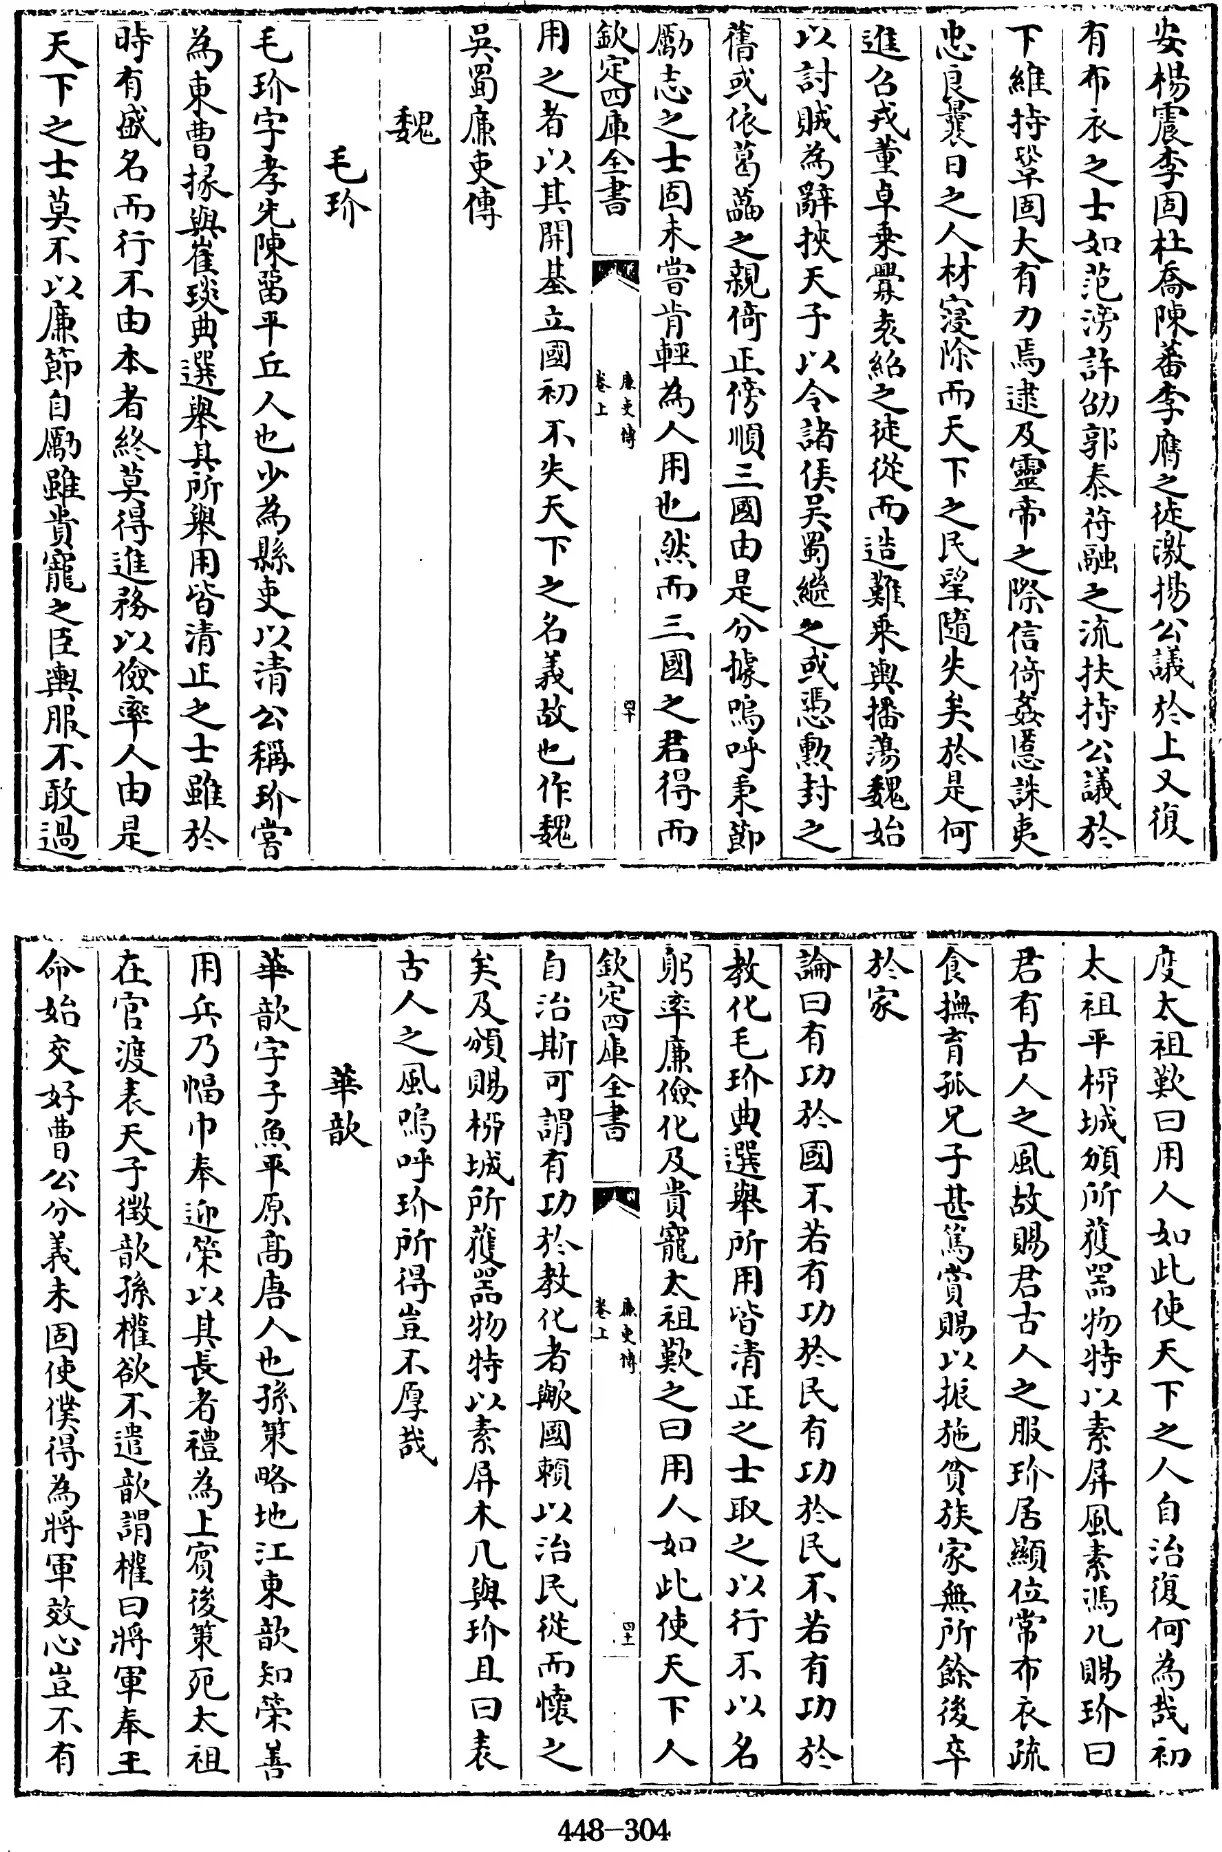 安楊震李固杜喬陳蕃李膺之徒激揚公議於上又復
有布衣之士如范滂許劭郭泰符融之流扶持公議於
下維持鞏固大有力焉逮及靈帝之際信倚姦慝誅夷
忠良曩日之人材寖除而天下之民望隨失矣於是何
進召戎董卓乗釁袁紹之徒從而造難乗輿播蕩魏始
以討賊為辭挾天子以令諸侯吴蜀繼之或憑勲封之
舊或依葛藟之親倚正傍順三國由是分據嗚呼秉節
勵志之士固未嘗肯輕為人用也然而三國之君得而
欽定四庫全書
廉吏傳
卷上
四十
用之者以其開基立國初不失天下之名義故也作魏
吳蜀廉吏傳
魏
毛玠
毛玠字孝先陳留平丘人也少為縣吏以清公稱玠嘗
為東曹掾與崔琰典選舉其所舉用皆清正之士雖於
時有盛名而行不由本者終莫得進務以儉率人由是
天下之士莫不以廉節自勵雖貴寵之臣輿服不敢過
度太祖歎曰用人如此使天下之人自治復何為哉初
太祖平栁城頒所獲器物特以素屏風素馮几賜玠曰
君有古人之風故賜君古人之服玠居顯位常布衣疏
食撫育孤兄子甚篤賞賜以振施貧族家無所餘後卒
於家
論曰有功於國不若有功於民有功於民不若有功於
教化毛玠典選舉所用皆清正之士取之以行不以名
躬率廉儉化及貴寵太祖歎之曰用人如此使天下人
欽定四庫全書
廉吏傳
卷上
四十一
自治斯可謂有功於教化者歟國賴以治民從而懷之
矣及頒賜栁城所獲器物特以素屏木几與玠且曰表
古人之風嗚呼玠所得豈不厚哉
華歆
華歆字子魚平原髙唐人也孫策略地江東歆知策善
用兵乃幅巾奉迎策以其長者禮為上賓後策死太祖
在官渡表天子徴歆孫權欲不遣歆謂權曰將軍奉王
命始交好曹公分義未固使僕得為將軍效心豈不有
448-304